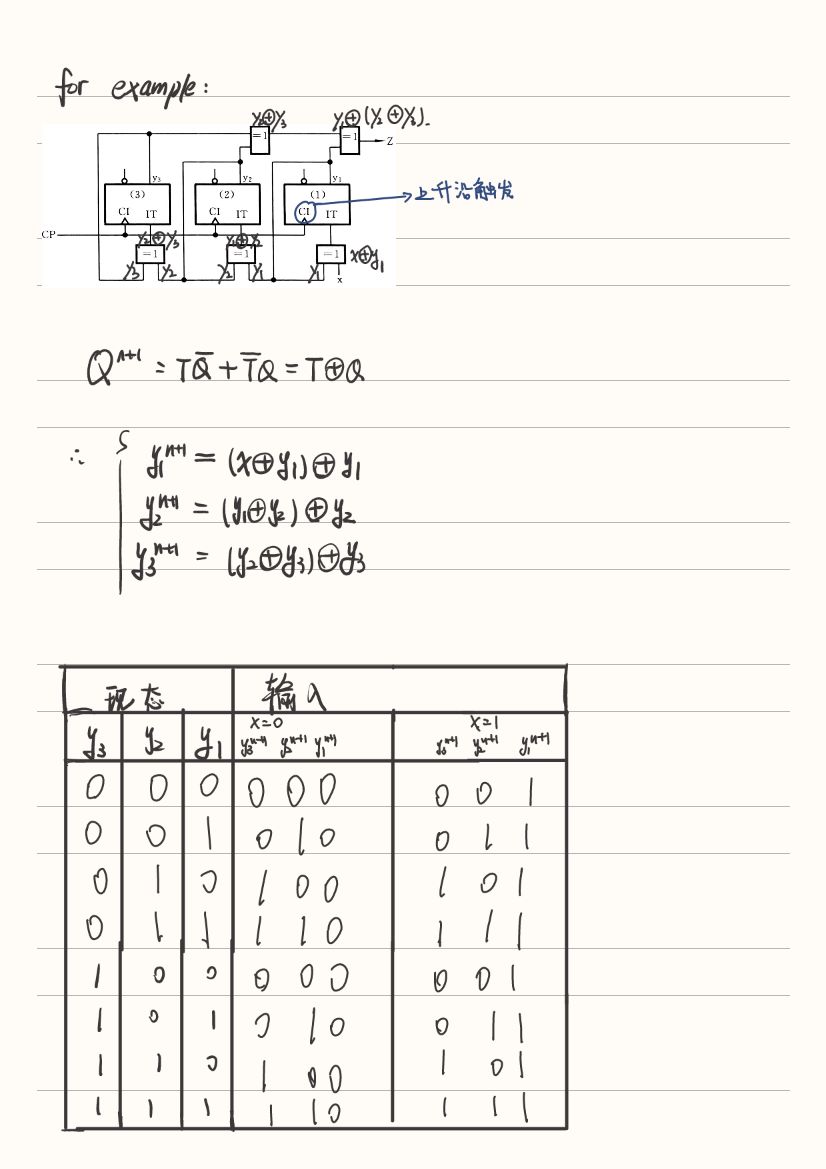 for example:
y₂⊕y₃ y₁⊕(y₂⊕y₃).
=1 =1 Z
y₃ y₂ y₁
(3) (2) (1) 上升沿触发
CI IT CI IT CI IT
CP y₂⊕y₃ y₁⊕y₂
=1 =1 =1 x⊕y₁
y₃ y₂ y₂ y₁ y₁ x
Qⁿ⁺¹ = TQ̅ + T̅Q = T⊕Q
∴ y₁ⁿ⁺¹ = (x⊕y₁)⊕y₁
y₂ⁿ⁺¹ = (y₁⊕y₂)⊕y₂
y₃ⁿ⁺¹ = (y₂⊕y₃)⊕y₃
现态 输入
x=0 x=1
y₃ y₂ y₁ y₃ⁿ⁺¹ y₂ⁿ⁺¹ y₁ⁿ⁺¹ y₃ⁿ⁺¹ y₂ⁿ⁺¹ y₁ⁿ⁺¹
0 0 0 0 0 0 0 0 1
0 0 1 0 1 0 0 1 1
0 1 0 1 0 0 1 0 1
0 1 1 1 1 0 1 1 1
1 0 0 0 0 0 0 0 1
1 0 1 0 1 0 0 1 1
1 1 0 1 0 0 1 0 1
1 1 1 1 1 0 1 1 1